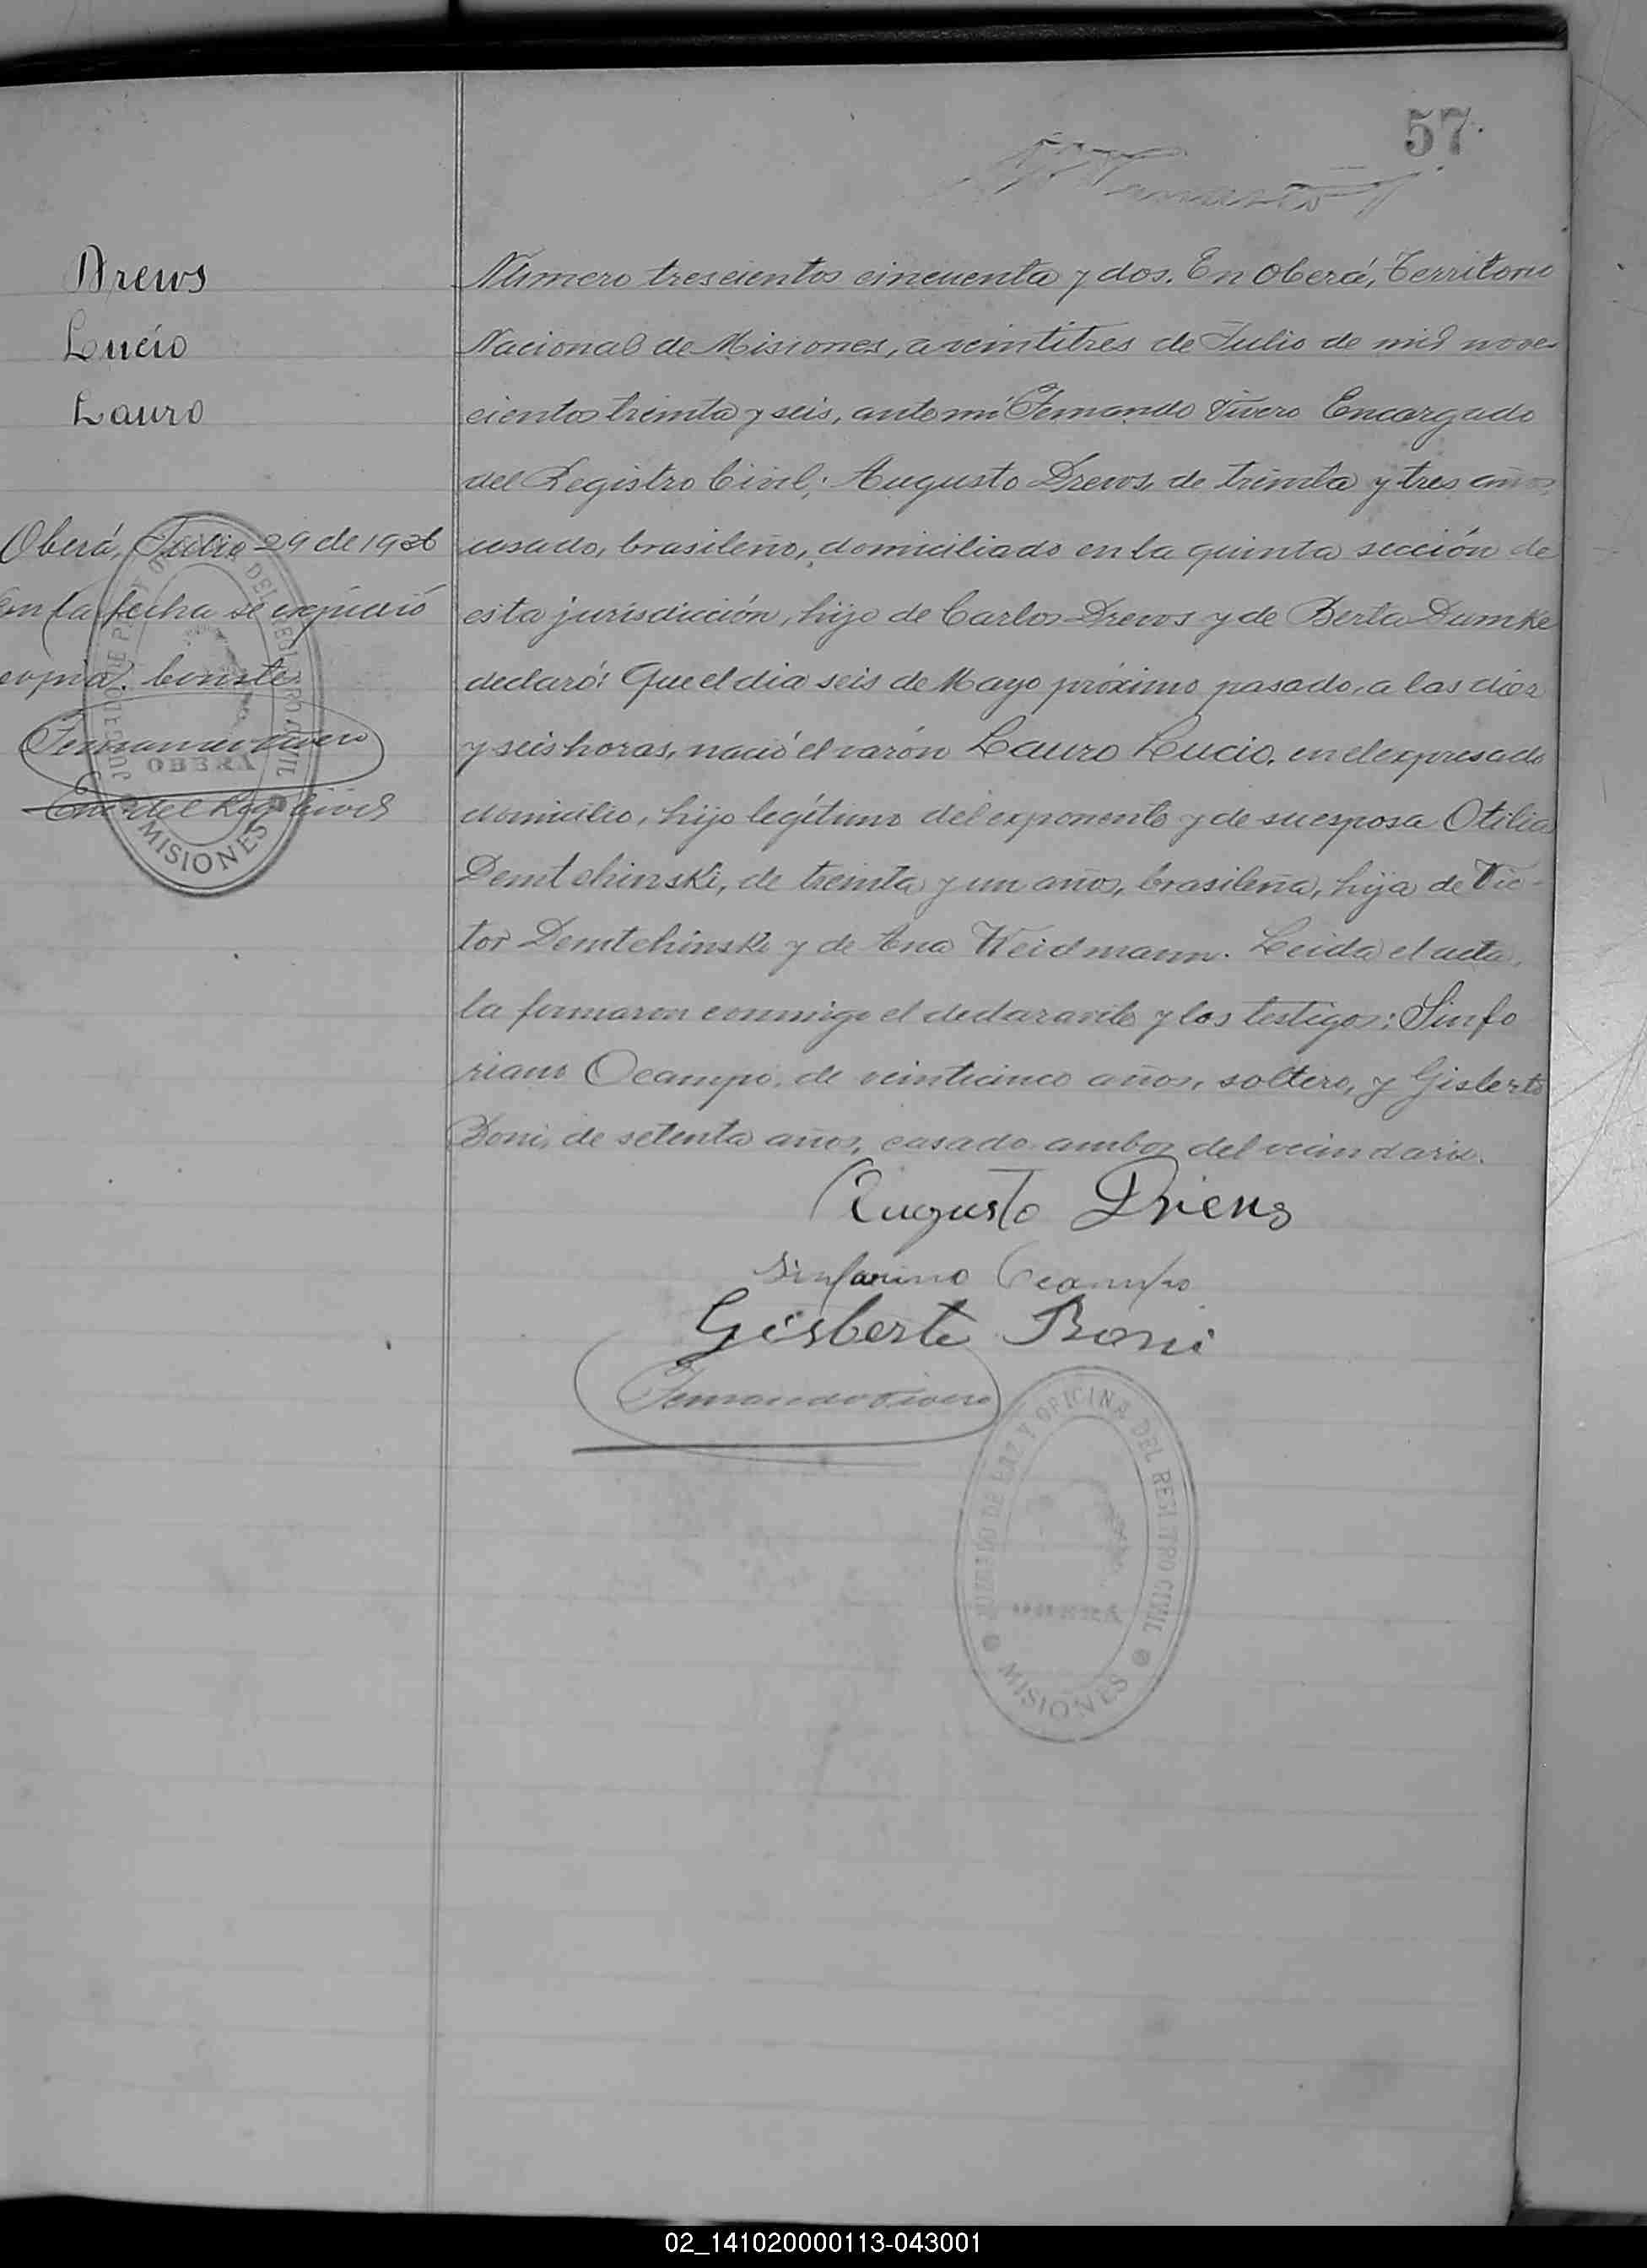 57.
Drews
Lucio
Lauro
Oberá, Julio 29 de 1936
En la fecha se expidió
copia. Conste.
Fernando Vivero
Enc. del Reg. Civil
OBERÁ
MISIONES
Número trescientos cincuenta y dos. En Oberá, Territorio
Nacional de Misiones, a veintitres de Julio de mil nove-
cientos treinta y seis, ante mi Fernando Vivero Encargado
del Registro Civil; Augusto Drews, de treinta y tres años,
casado, brasileño, domiciliado en la quinta sección de
esta jurisdicción, hijo de Carlos Drews y de Berta Dumke
declaró: Que el dia seis de Mayo próximo pasado, a las diez
y seis horas, nació el varón Lauro Lucio, en el expresado
domicilio, hijo legítimo del exponente y de su esposa Otilia
Demtchinski, de treinta y un años, brasileña, hija de Vic-
tor Demtchinski y de Ana Weidmann. Leida el acta,
la firmaron conmigo el declarante y los testigos: Sinfo
riano Ocampo, de veinticinco años, soltero, y Gisberto
Boni, de setenta años, casado ambos del vecindario.
Augusto Drews
Sinforiano Ocampo
Gisberto Boni
Fernando Vivero
JUZGADO DE PAZ Y OFICINA DEL REGISTRO CIVIL
MISIONES
02_141020000113-043001